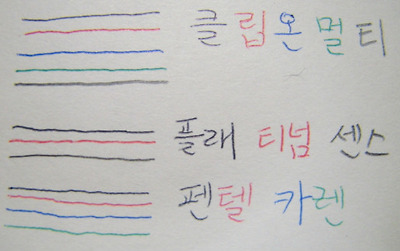 클립온멀티
플래티넘 센스
펜텔 카렌